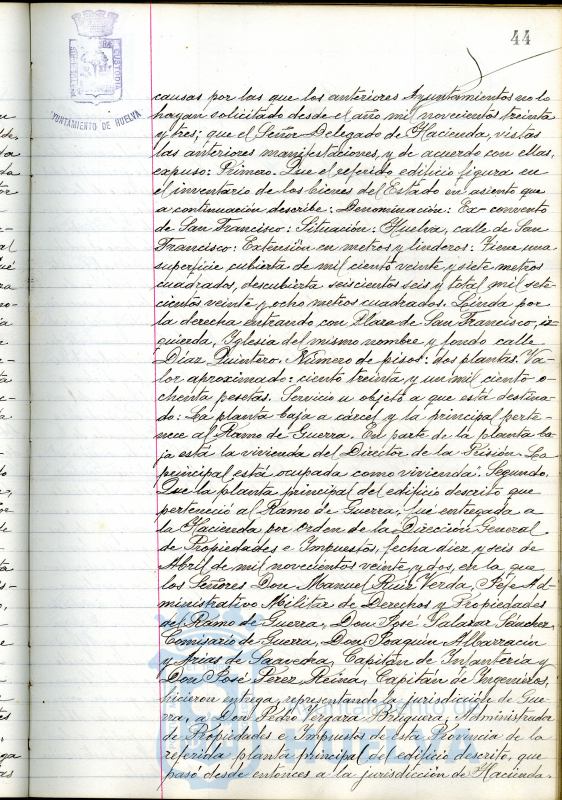 44
AYUNTAMIENTO DE HUELVA
causas por las que los anteriores Ayuntamientos no lo
hayan solicitado desde el año mil novecientos treinta
y tres; que el Señor Delegado de Hacienda, vistas
las anteriores manifestaciones, y de acuerdo con ellas,
expuso: Primero. Que el referido edificio figura en
el inventario de los bienes del Estado en asiento que
a continuación describe: Denominación: Ex-convento
de San Francisco: Situación: Huelva, calle de San
Francisco: Extensión en metros y linderos: Tiene una
superficie cubierta de mil ciento veinte y siete metros
cuadrados, descubierta seiscientos seis y total mil sete-
cientos veinte y ocho metros cuadrados. Linda por
la derecha entrando con Plaza de San Francisco, iz-
quierda, Iglesia del mismo nombre y fondo calle
Díaz Quintero. Número de pisos: dos plantas. Va-
lor aproximado: ciento treinta y un mil ciento o-
chenta pesetas. Servicio u objeto a que está destina-
do: La planta baja a cárcel y la principal perte-
nece al Ramo de Guerra. En parte de la planta ba-
ja está la vivienda del Director de la Prisión. La
principal está ocupada como vivienda: Segundo.
Que la planta principal del edificio descrito que
perteneció al Ramo de Guerra, fué entregada a
la Hacienda por orden de la Dirección General
de Propiedades e Impuestos, fecha diez y seis de
Abril de mil novecientos veinte y dos, en la que
los Señores Don Manuel Ruiz Verda, Jefe Ad-
ministrativo Militar de Derechos y Propiedades
del Ramo de Guerra, Don José Salazar Sánchez,
Comisario de Guerra, Don Joaquín Albarracín
y Arias de Saavedra, Capitán de Infantería y
Don José Pérez Reina, Capitán de Ingenieros,
hicieron entrega, representando la jurisdicción de Gue-
rra, a Don Pedro Vergara Bruguera, Administrador
de Propiedades e Impuestos de esta Provincia de la
referida planta principal del edificio descrito, que
pasó desde entonces a la jurisdicción de Hacienda.
Ayuntamiento de
HUELVA